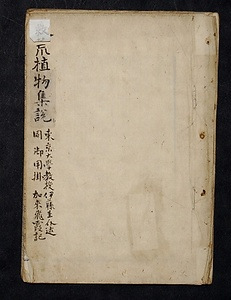 爪植物集説
東京大学教授伊藤圭介述
同御用掛 加来飛霞記